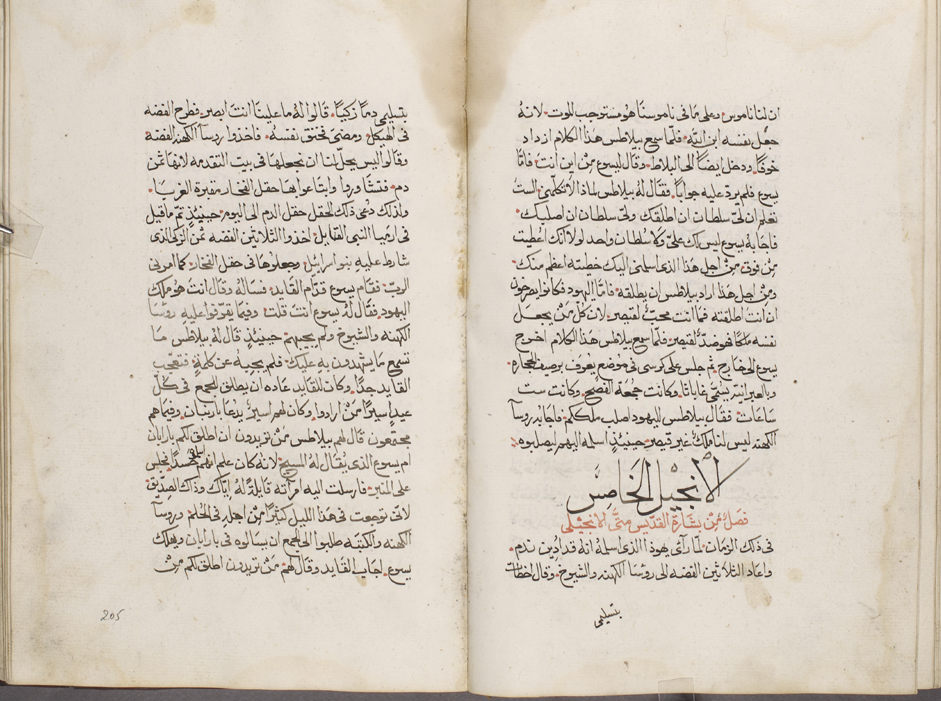 ان لنا ناموس وعلى ما فى ناموسنا هو مستوجب الموت لانه
جعل نفسه ابن الله فلمّا سمع بيلاطس هذا الكلام ازداد
خوفًا ودخل ايضًا الى البلاط وقال ليسوع من اين انت فامّا
يسوع فلم يردّ عليه جوابًا فقال له بيلاطس لماذا لا تكلمني الست
تعلم ان لى سلطان ان اطلقك ولى سلطان ان اصلبك
فاجابه يسوع ليس لك علىّ ولا سلطان واحد لولا انك اعطيت
من فوق من اجل هذا الذى اسلمني اليك خطيته اعظم منك
ومن اجل هذا اراد بيلاطس ان يطلقه فامّا اليهود فكانوا يصرخون
ان انت اطلقته فما انت محبّ لقيصر لان كلّ من يجعل
نفسه ملكًا فهو ضدّ لقيصر فلمّا سمع بيلاطس هذا الكلام اخرج
يسوع الى خارج ثم جلس على كرسى فى موضع يعرف برصيف الحجاره
وبالعبرانيه يسمّى غاباثا وكانت جمعة الفصح وكانت ست
ساعات فقال بيلاطس لليهود اصلب ملككم فاجابه روسآ
الكهنه ليس لنا ملك غير قيصر حينيذٍ اسلمه اليهم ليصلبوه
الانجيل الخامس
فصل من بشارة القديس متى الانجيلى
فى ذلك الزمان لمّا رآى يهوذا الذى اسلمه انه قد ادين ندم
واعاد الثلاثين الفضه الى روسا الكهنه والشيوخ وقال اخطات
بتسليمى
بتسليمى دمًا زكيًا قالوا له ما علينا انت ابصر فطرح الفضه
فى الهيكل ومضى فخنق نفسه فاخذوا روسآ الكهنه الفضه
وقالوا ليس يحلّ لنا ان نجعلها فى بيت التقدمه لانها ثمن
دم فتشاوروا وابتاعوا بها حقل الفخار مقبرة الغربا
ولذلك دعى ذلك الحقل حقل الدم الى اليوم حينيذٍ تمّ ما قيل
فى ارميا النبى القايل اخذوا الثلاثين الفضه ثمن الزكى الذى
شارط عليه بنو اسرايل وجعلوها فى حقل الفخار كما امرنى
الربّ فقام يسوع قدّام القايد فساله وقال انت هو ملك
اليهود فقال له يسوع انت قلت وفيما يقرّفوا عليه روسآ
الكهنه والشيوخ ولم يجبهم حينيذٍ قال له بيلاطس ما
تسمع ما يشهدون به عليك فلم يجبه عن كلمه فتعجّب
القايد جدًا وكان للقايد عاده ان يطلق للجمع فى كلّ
عيد اسيرًا من ارادوا وكان لهم اسير يدعا بارابان وفيما هم
مجتمعون قال لهم بيلاطس من تريدون ان اطلق لكم بارابان
ام يسوع الذى يقال له المسيح لانه كان علم انهم اسلموه حسدًا فجلس
على المنبر فارسلت اليه امرآته قايلة له اياك وذاك الصدّيق
لانى توجعت فى هذا الليل كثيرًا من اجله فى الحلم وروسآ
الكهنه والكتبه طلبوا الى الجمع ان يسالوه فى بارابان ويهلك
يسوع اجاب القايد وقال لهم من تريدون اطلق لكم من
205